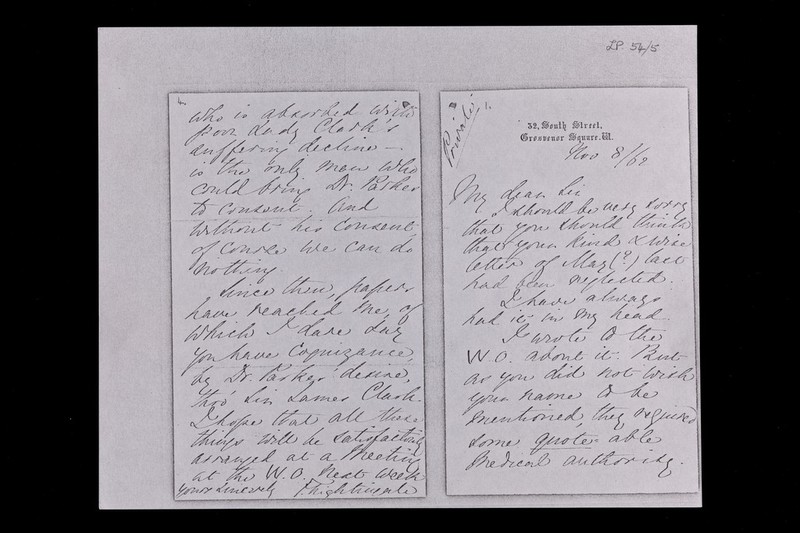 LP. 54/5
1.
Private
32, South Street,
Grosvenor Square. W.
Nov 8/62
My dear Sir
I should be very sorry
that you should think
that your kind & wise
letter of May (?) last
had been neglected.
I have always
had it in my head.
I wrote to the
W.O. about it. But
as you did not wish
your name to be
mentioned, they required
some quote-able
Medical authority.
4.
who is absorbed with
poor Lady Clark's
suffering decline —
is the only man who
could bring Dr. Parkes
to consent. And
without his consent
of course we can do
nothing.
Since then, papers
have reached me, of
which I dare say
you have Cognizance,
by Dr. Parkes' desire,
thro' Sir James Clark.
I hope that all these
things will be satisfactorily
arranged at a Meeting
at the W.O. next week
yours sincerely F Nightingale